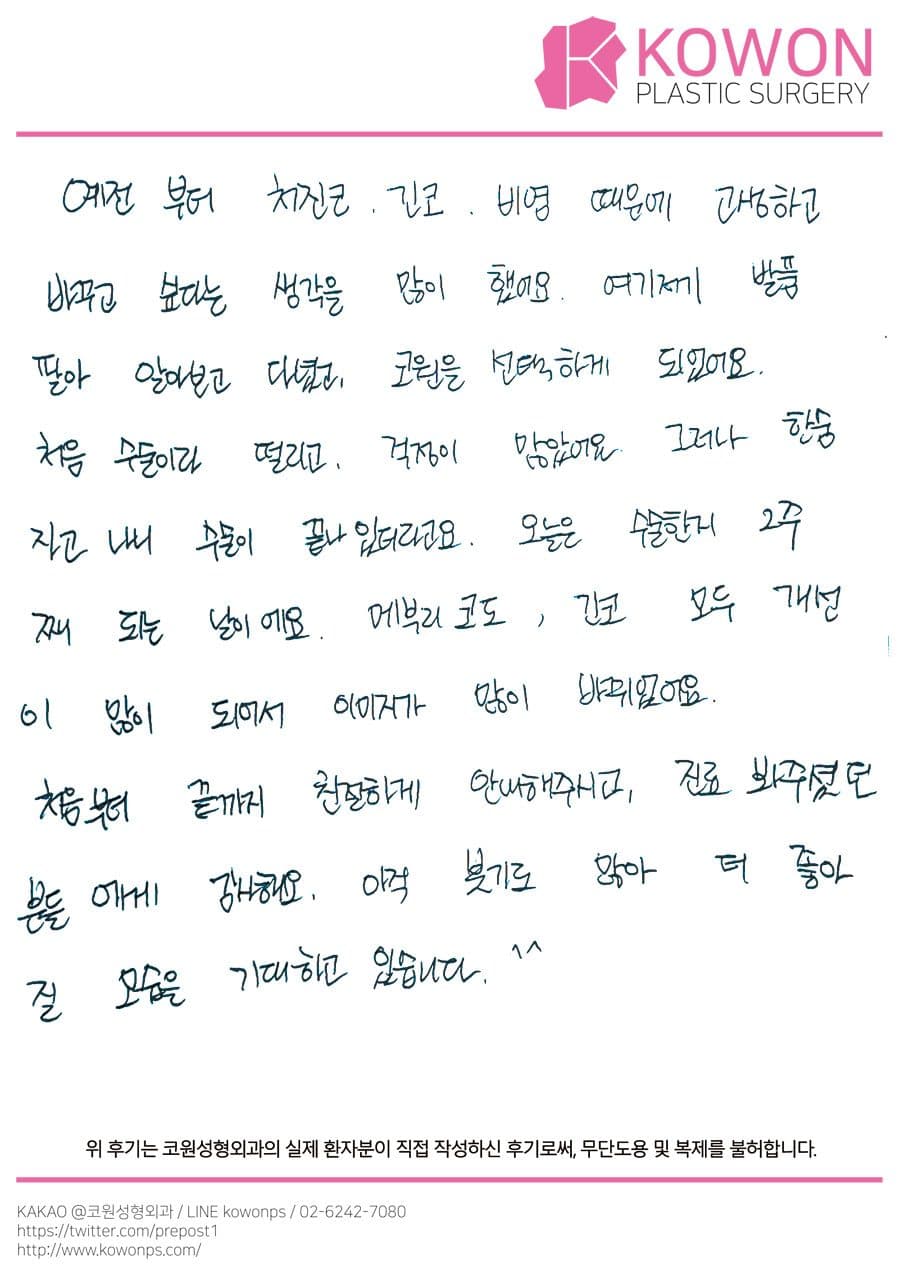 KOWON
PLASTIC SURGERY
예전 부터 처진코 . 긴코 . 비염 때문에 고생하고
바꾸고 싶다는 생각을 많이 했어요. 여기저기 발품
팔아 알아보고 다녔고, 코원을 선택하게 되었어요.
처음 수술이라 떨리고, 걱정이 많았어요. 그러나 한숨
자고 나니 수술이 끝나 있더라고요. 오늘은 수술한지 2주
째 되는 날이에요. 메부리코도, 긴코 모두 개선
이 많이 되어서 이미지가 많이 바뀌었어요.
처음부터 끝까지 친절하게 안내해주시고, 진료 봐주셨던
분들 에게 감사해요. 아직 붓기도 많아 더 좋아
질 모습을 기대하고 있습니다. ^^
위 후기는 코원성형외과의 실제 환자분이 직접 작성하신 후기로써, 무단도용 및 복제를 불허합니다.
KAKAO @코원성형외과 / LINE kowonps / 02-6242-7080
https://twitter.com/prepost1
http://www.kowonps.com/